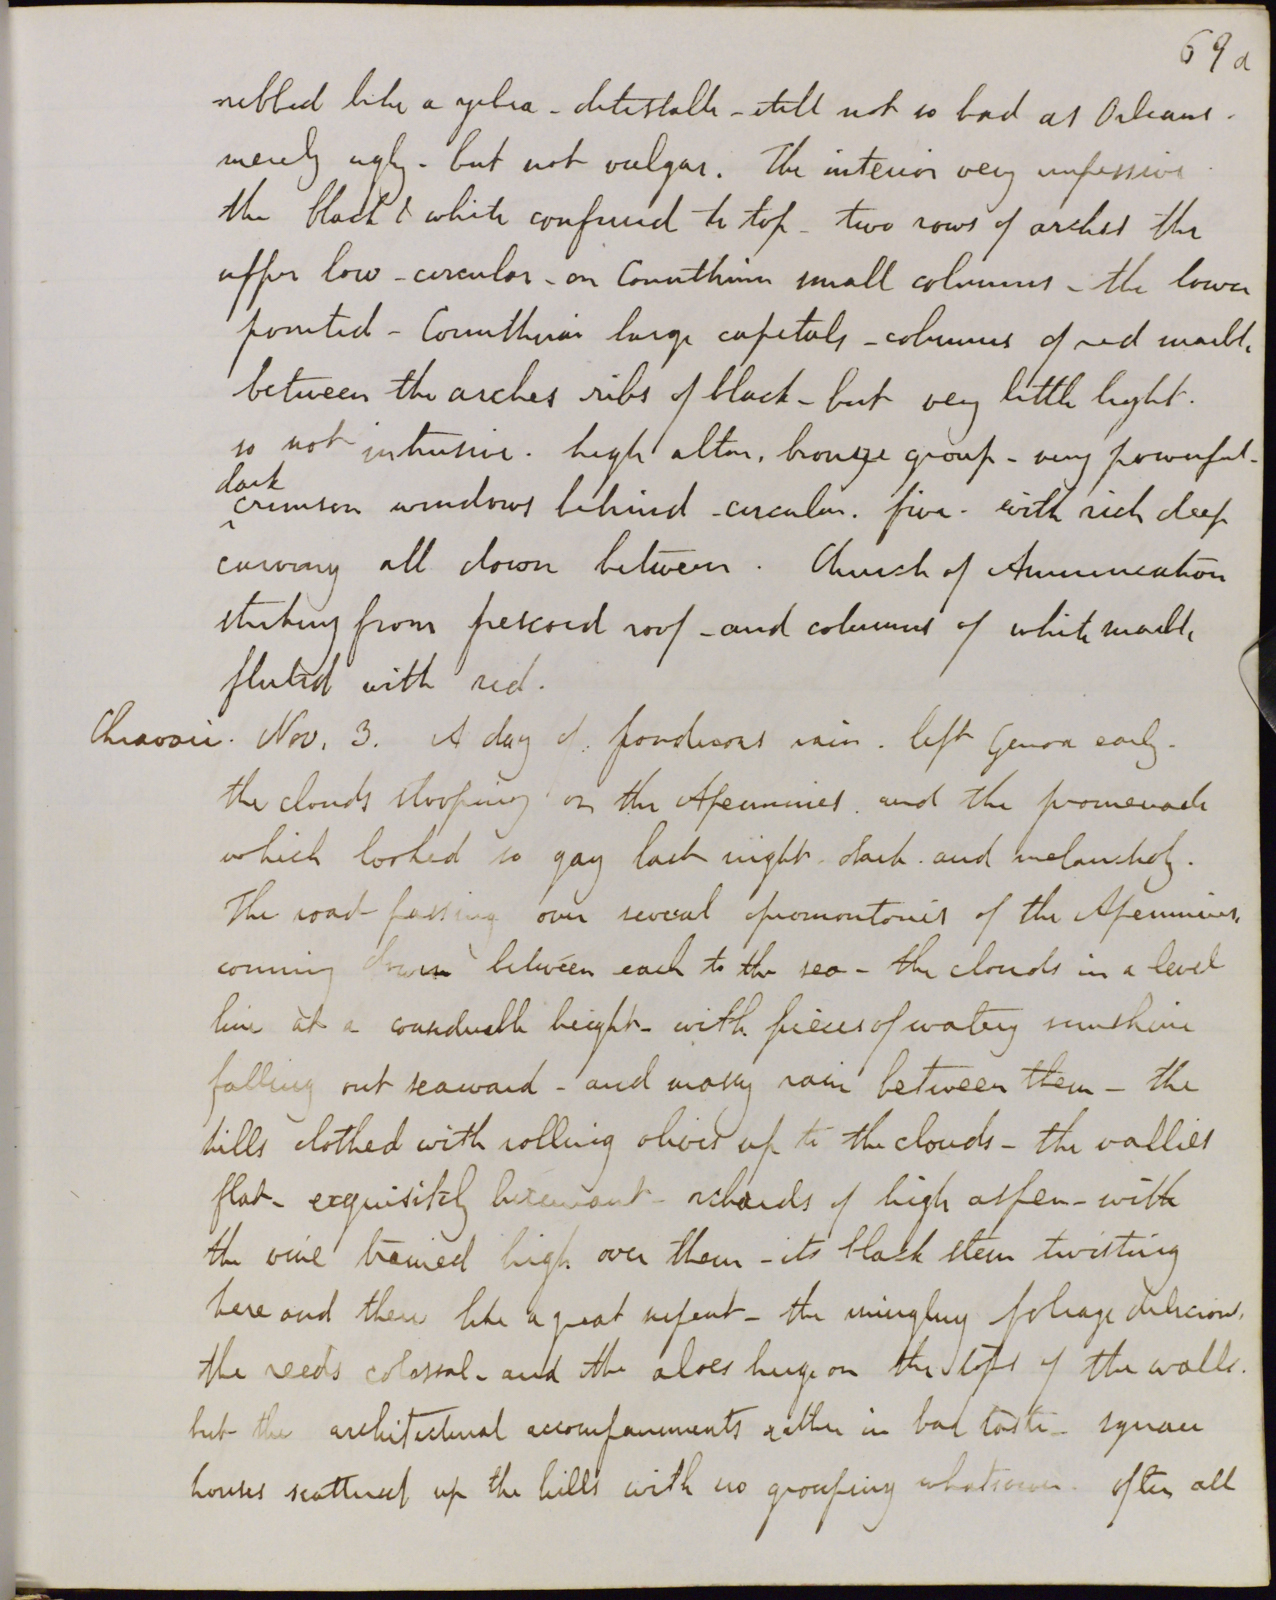 69a
ribbed like a zebra - detestable - still not so bad as Orleans.
merely ugly - but not vulgar. The interior very impressive
the black & white confined to top - two rows of arches the
upper low - circular - on Corinthian small columns - the lower
pointed - Corinthian large capitals - columns of red marble
between the arches ribs of black - but very little light.
so not intrusive. high altar, bronze group - very powerful -
dark
^crimson windows behind - circular. five. with rich deep
carving all down between. Church of Annunciation
striking from frescoed roof - and columns of white marble
fluted with red.
Chiavari. Nov. 3. A day of ponderous rain. left Genoa early -
the clouds stooping on the Apennines. and the promenade
which looked so gay last night. dark. and melancholy.
The road passing over several promontories of the Apennines,
coming down between each to the sea - the clouds in a level
line at a considerable height - with pieces of watery sunshine
falling out seaward - and massy rain between them - the
hills clothed with rolling olives up to the clouds - the vallies
flat - exquisitely luxuriant - orchards of high aspen - with
the vine trained high over them - its black stem twisting
here and there like a great serpent - the mingling foliage delicious,
the reeds colossal - and the aloes huge on the tops of the walls.
but the architectural accompaniments rather in bad taste - square
houses scattered up the hills with no grouping whatsoever. often all